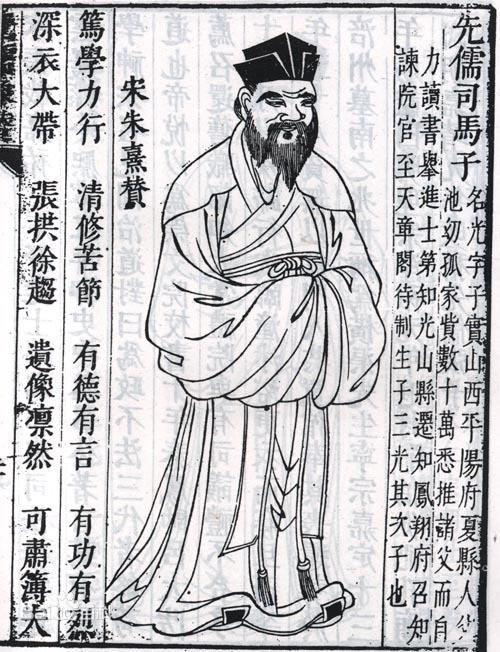 先儒司馬子
名光字子實山西平陽府夏縣人父
池幼孤家貲數十萬悉推諸父而自
力讀書舉進士第知光山縣遷知鳳翔府召知
諫院官至天章閣待制生子三光其次子也
宋朱熹賛
篤學力行 清修苦節 有德有言 有功有
深衣大帶 張拱徐趨 遺像凛然 可肅薄夫